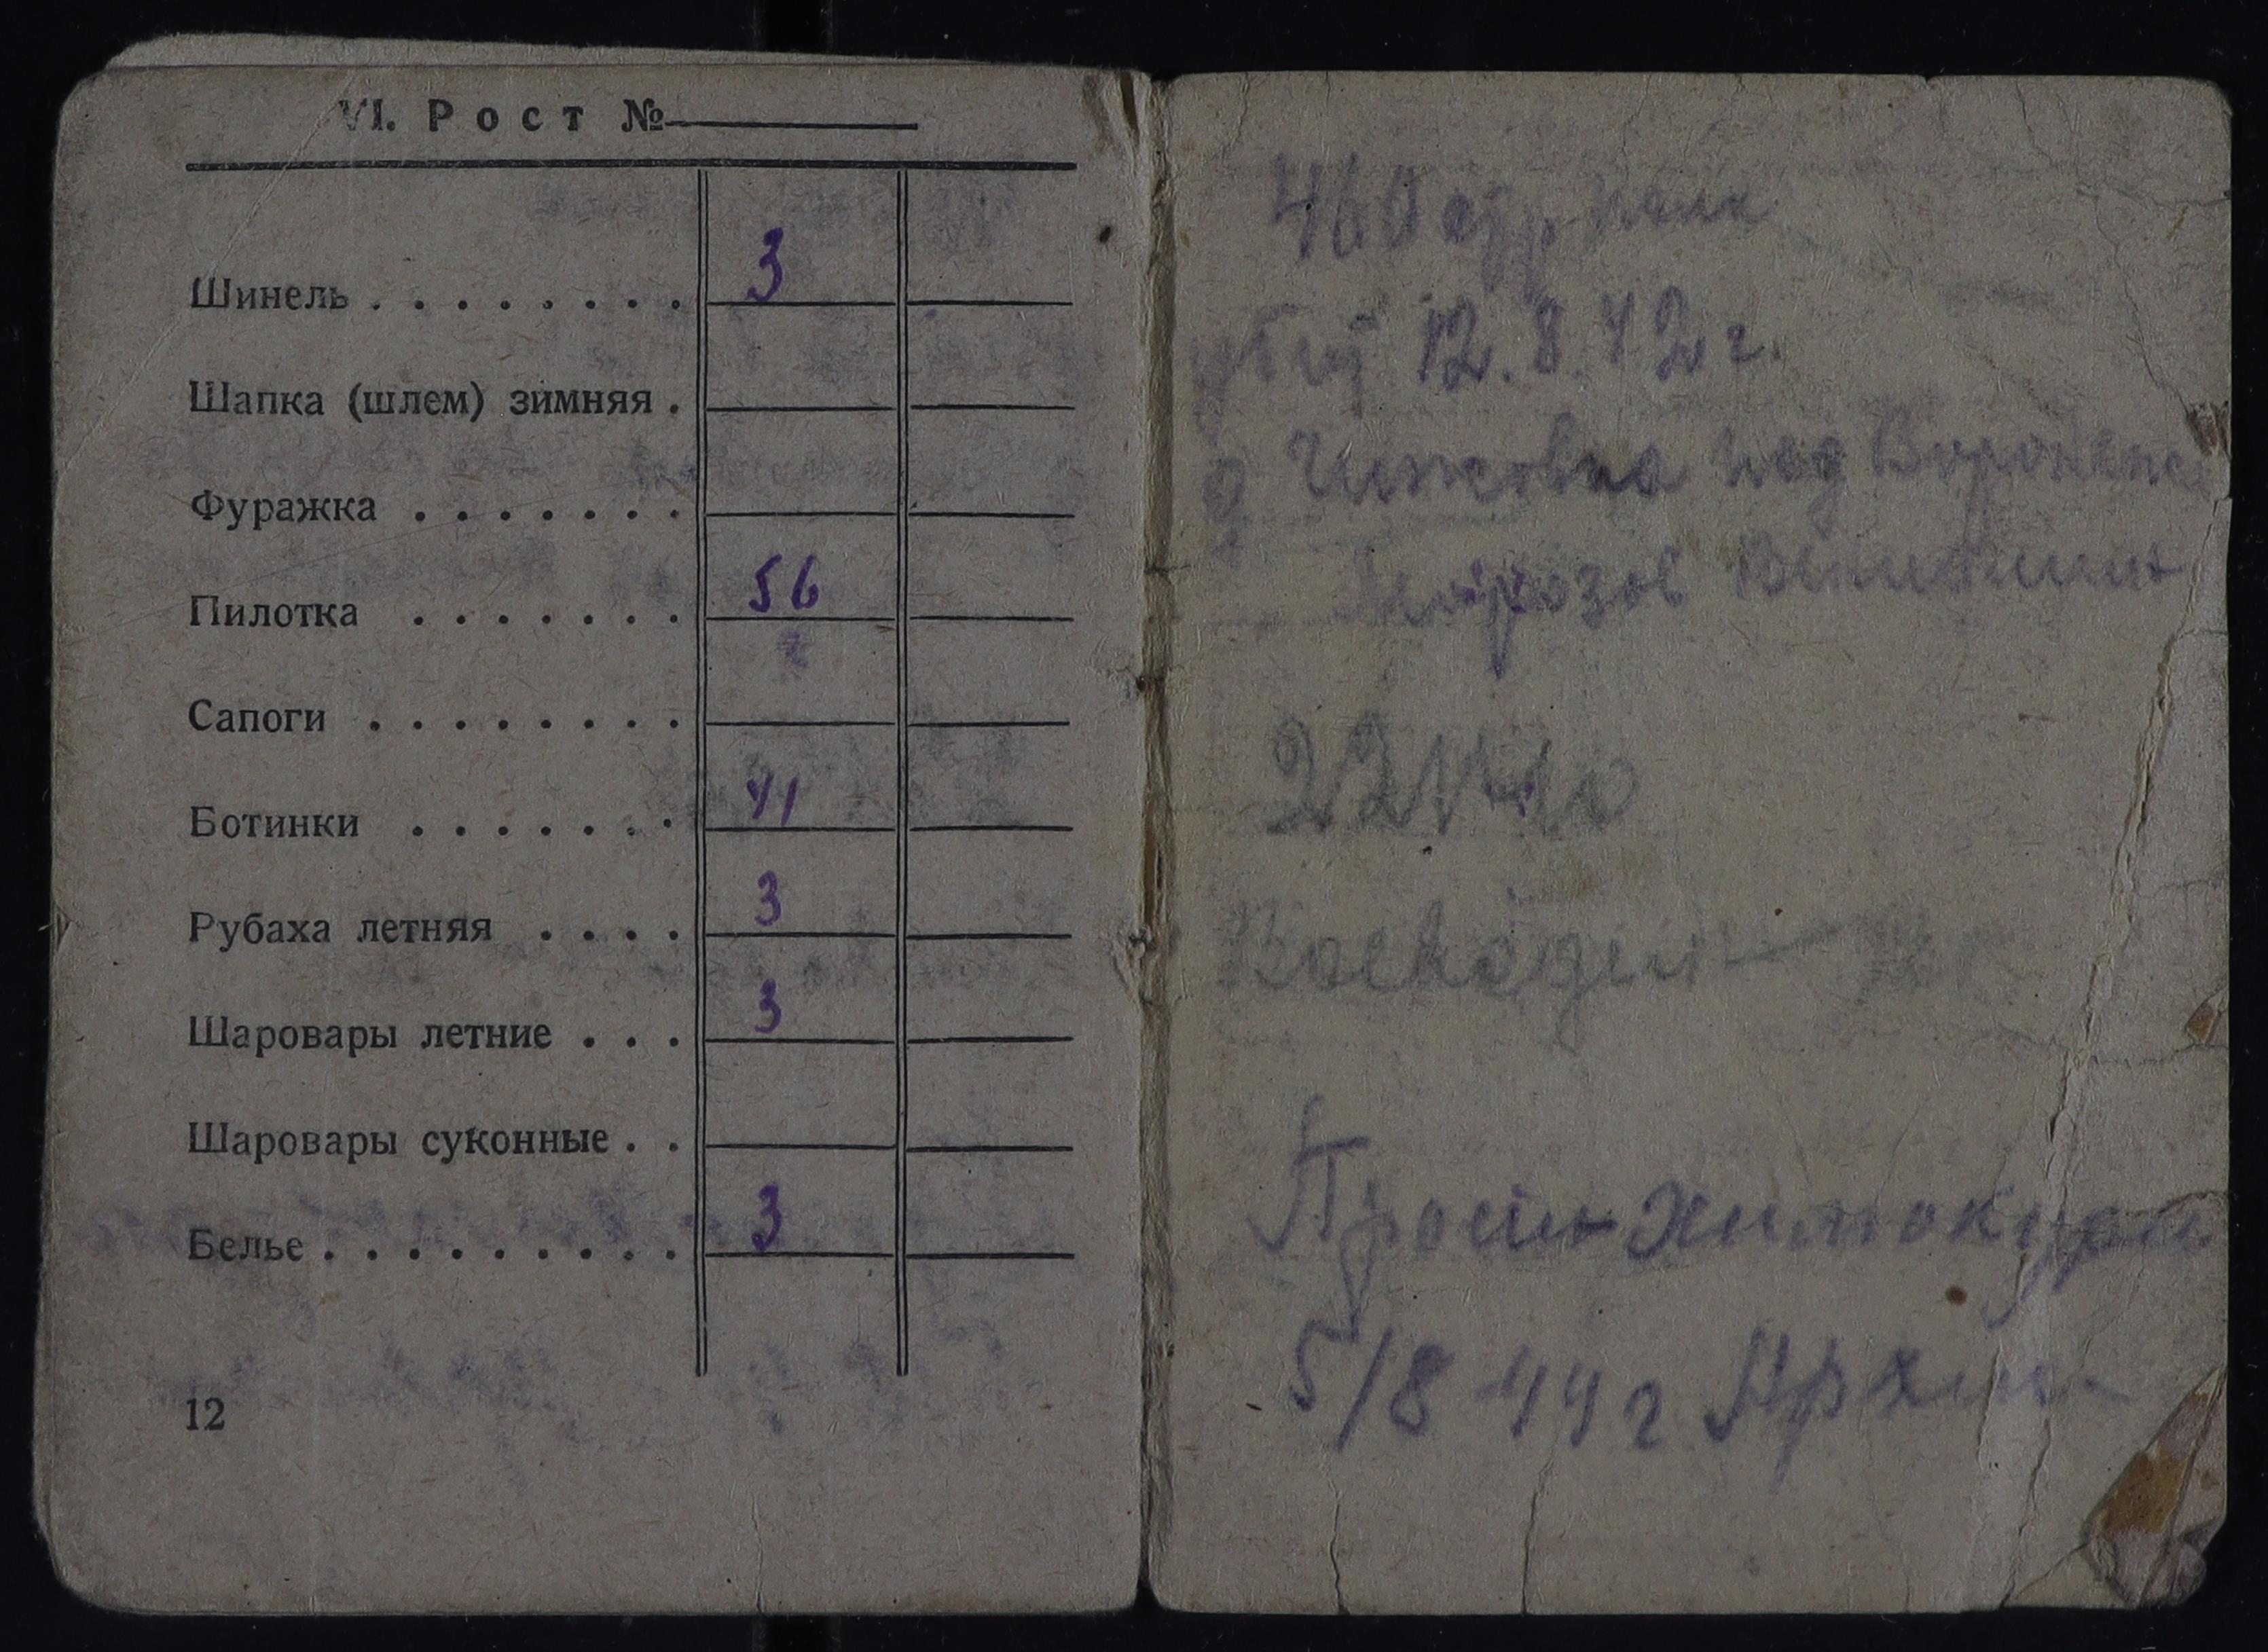 VI. Рост №
Шинель . . . . . . . . 3
Шапка (шлем) зимняя .
Фуражка . . . . . . .
Пилотка . . . . . . . 56
Сапоги . . . . . . . .
Ботинки . . . . . . . 41
Рубаха летняя . . . . 3
Шаровары летние . . . 3
Шаровары суконные . .
Белье . . . . . . . . . 3
12
460 стр полк
убит 12.8.42 г.
д Чижовка под Воронеже
Морозов
5/8 44 г